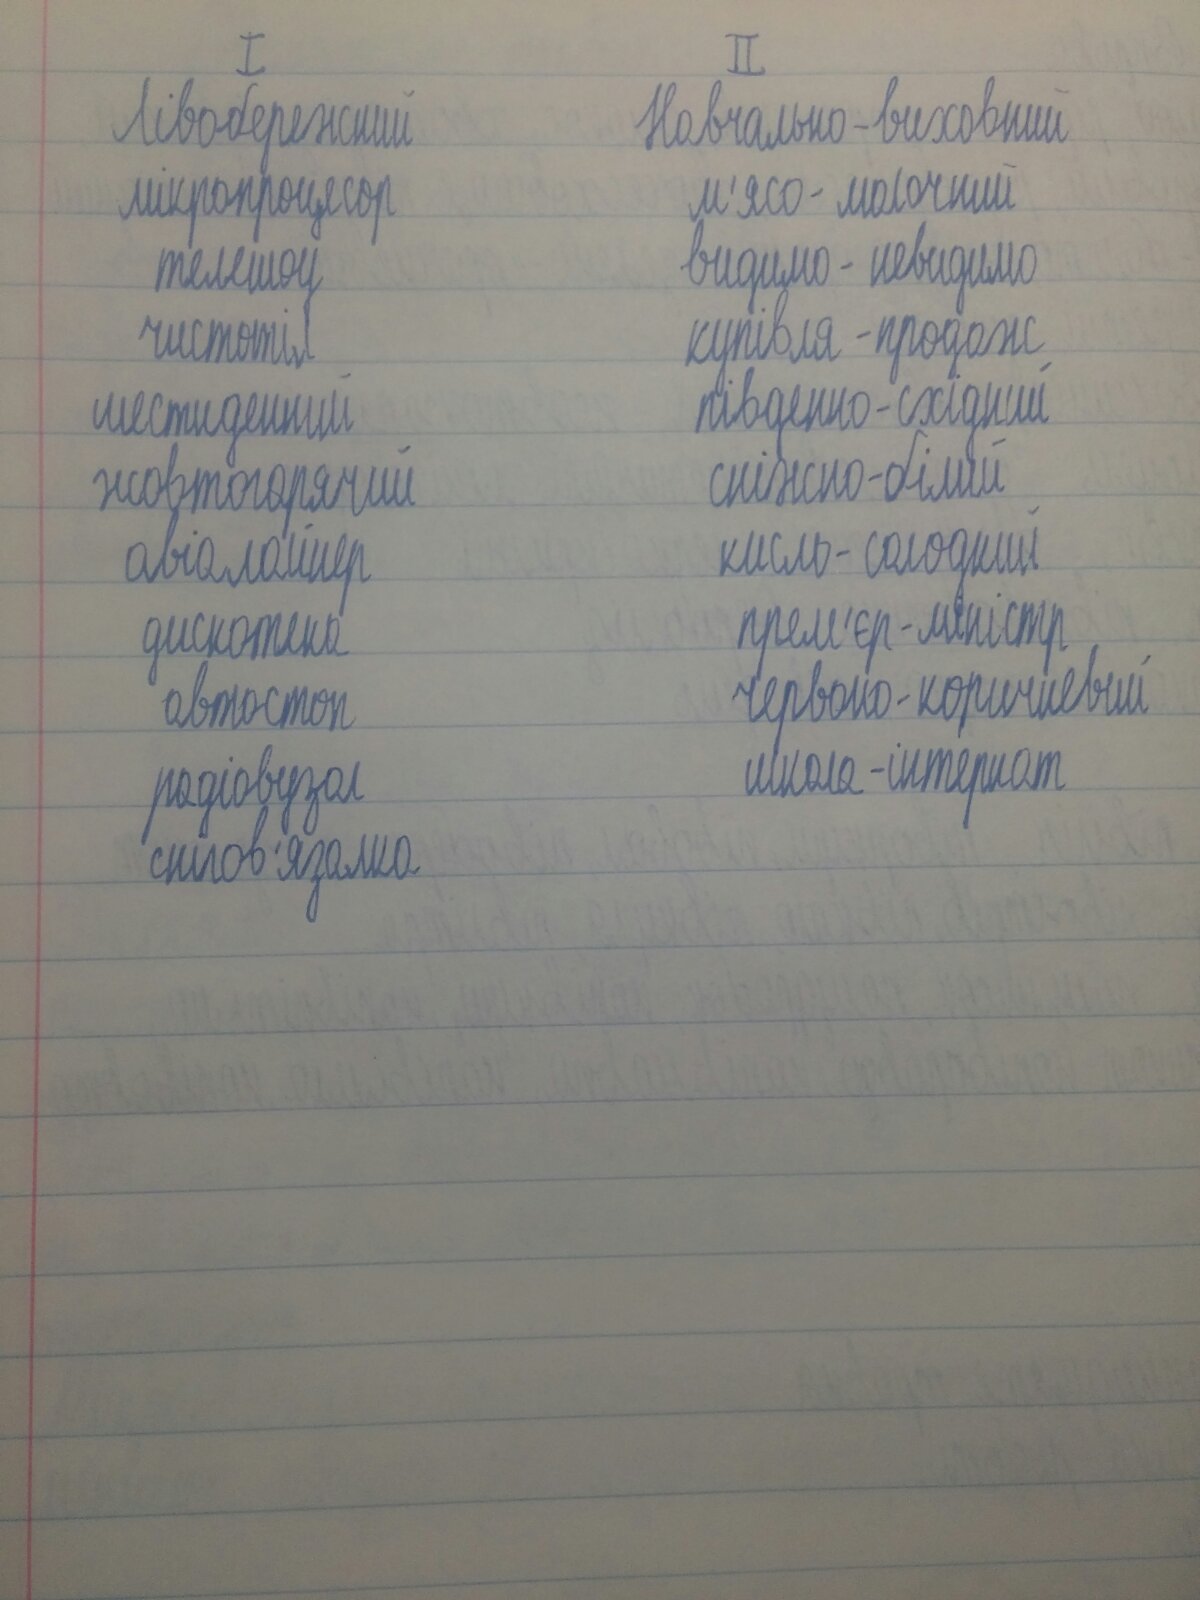 I II
Лівобережний Навчально-виховний
мікропроцесор м'ясо-молочний
телешоу видимо-невидимо
чистотіл купівля-продаж
шестиденний південно-східний
жовтогарячий сніжно-білий
авіалайнер кисль-солодкий
дискотека прем'єр-міністр
автостоп червоно-коричневий
радіовузол школа-інтернат
снігов'язалка